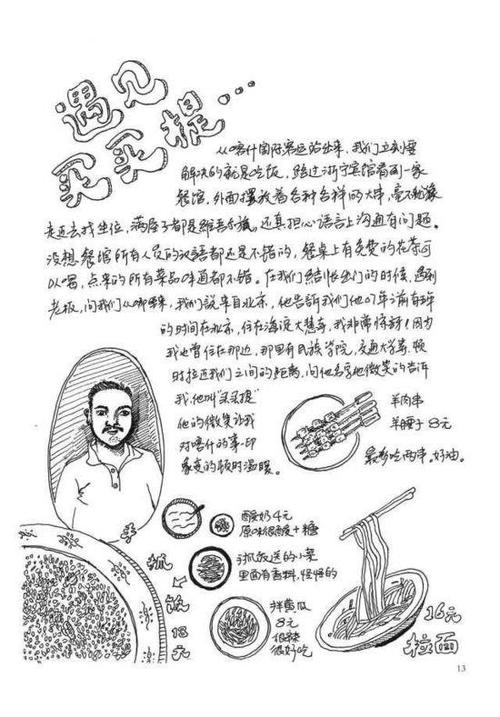 遇见
买买提…
从喀什国际客运站出来，我们立刻要
解决的就是吃饭，路过浙宁宾馆看到一家
餐馆，外面摆放着各种各样的大串，毫不犹豫
走进去找坐位，满屋子都是维吾尔族。还真担心语言上沟通有问题。
没想餐馆所有人员的汉语都还是不错的，餐桌上有免费的花茶可
以喝，点来的所有菜品味道都不错。在我们结帐出门的时候，遇到
老板，问我们从哪来，我们说来自北京，他告诉我们他07年前有
的时间在北京，住在海淀大慧寺，我非常惊讶！因为
我也曾住在那边，那里有民族学院，交通大学等，顿
时拉近我们之间的距离，问他名字他微笑的告诉
我，他叫“买买提”
他的微笑让我
对喀什的第一印
象变的顿时温暖。
羊肉串
羊腰子 8元
最多吃两串。好油。
酸奶4元
原味很酸+糖
抓饭送的小菜
里面有香料，怪怪的
抓饭
18元
拌黄瓜
8元
很辣
很好吃
16元
拉面
13